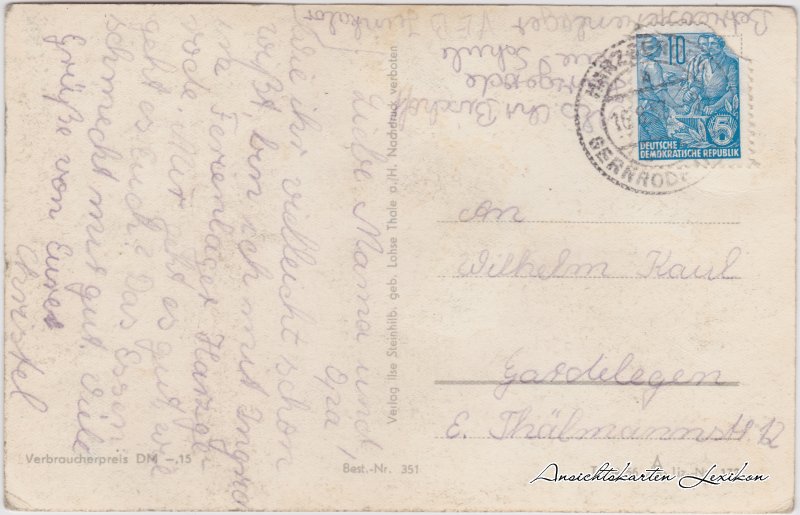 Liebe Mama und
Opa!
Wie ihr vielleicht schon
wißt, bin ich mit Ingrid
im Ferienlager Harzge
rode. Mir geht es gut, wie
geht es Euch? Das Essen
schmeckt mir gut. Viele
Grüße von Eurer
Christel
Schule
Harzgerode
10
DEUTSCHE
DEMOKRATISCHE REPUBLIK
GERNRODE
An
Wilhelm Kaul
Gardelegen
E. Thälmannstr. 12
Verlag Ilse Steinhilb. geb. Lohse Thale a./H. Nachdruck verboten
Verbraucherpreis DM -,15
Best.-Nr. 351
Ansichtskarten Lexikon